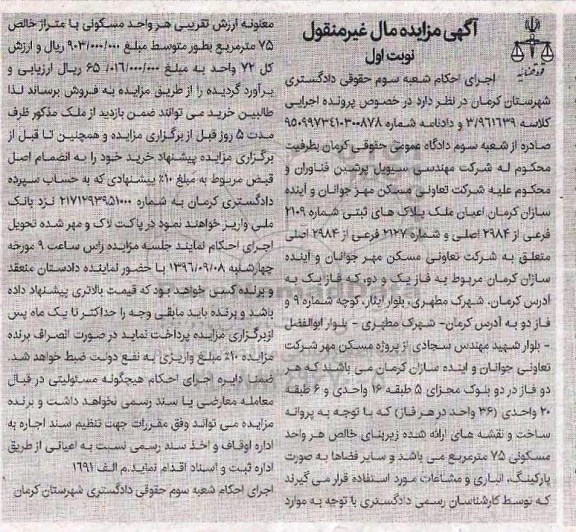 آگهی مزایده مال غیرمنقول
نوبت اول
اجرای احکام شعبه سوم حقوقی دادگستری
شهرستان کرمان در نظر دارد در خصوص پرونده اجرایی
کلاسه ۳/۹۶۱۶۳۹ و دادنامه شماره ۹۵۰۹۹۷۳۴۱۰۳۰۰۸۷۸
صادره از شعبه سوم دادگاه عمومی حقوقی کرمان بظرفیت
محکوم له شرکت مهندسی سیویل پرشین فناوران و
محکوم علیه شرکت تعاونی مسکن مهر جوانان و آینده
سازان کرمان اعیان ملک پلاک های ثبتی شماره ۲۱۰۹
فرعی از ۲۹۸۴ اصلی و شماره ۲۱۲۷ فرعی از ۲۹۸۴ اصلی
متعلق به شرکت تعاونی مسکن مهر جوانان و آینده
سازان کرمان مربوط به فاز یک و دو، که فاز یک به
آدرس کرمان، شهرک مطهری، بلوار ایثار، کوچه شماره ۹ و
فاز دو به آدرس کرمان- شهرک مطهری - بلوار ابوالفضل
- بلوار شهید مهندس سجادی از پروژه مسکن مهر شرکت
تعاونی جوانان و آینده سازان کرمان می باشند که هر
دو فاز در دو بلوک مجزای ۵ طبقه ۱۶ واحدی و ۶ طبقه
۲۰ واحدی (۳۶ واحد در هر فاز) که با توجه به پروانه
ساخت و نقشه های ارائه شده زیربنای خالص هر واحد
مسکونی ۷۵ مترمربع می باشد و سایر فضاها به صورت
پارکینگ، انباری و مشاعات مورد استفاده قرار می گیرند
که توسط کارشناسان رسمی دادگستری با توجه به موارد
معنونه ارزش تقریبی هر واحد مسکونی با متراژ خالص
۷۵ مترمربع بطور متوسط مبلغ ۹۰۳/۰۰۰/۰۰۰ ریال و ارزش
کل ۷۲ واحد به مبلغ ۶۵/۰۱۶/۰۰۰/۰۰۰ ریال ارزیابی و
برآورد گردیده را از طریق مزایده به فروش برساند لذا
طالبین خرید می توانند ضمن بازدید از ملک مذکور ظرف
مدت ۵ روز قبل از برگزاری مزایده و همچنین تا قبل از
برگزاری مزایده پیشنهاد خرید خود را به انضمام اصل
قبض مربوط به مبلغ ۱۰٪ پیشنهادی که به حساب سپرده
دادگستری کرمان به شماره ۲۱۷۱۲۹۳۹۵۱۰۰۰ نزد بانک
ملی واریز خواهند نمود در پاکت لاک و مهر شده تحویل
اجرای احکام نمایند جلسه مزایده راس ساعت ۹ مورخه
چهارشنبه ۱۳۹۶/۰۹/۰۸ با حضور نماینده دادستان منعقد
و برنده کسی خواهد بود که قیمت بالاتری پیشنهاد داده
باشد و برنده باید مابقی وجه را حداکثر تا یک ماه پس
ازبرگزاری مزایده پرداخت نماید در صورت انصراف برنده
مزایده ۱۰٪ مبلغ واریزی به نفع دولت ضبط خواهد شد.
ضمنا دایره اجرای احکام هیچگونه مسئولیتی در قبال
معامله معارض یا سند رسمی نخواهد داشت و برنده
مزایده می تواند وفق مقررات جهت تنظیم سند اجاره به
اداره اوقاف و اخذ سند رسمی نسبت به اعیانی از طریق
اداره ثبت و اسناد اقدام نماید.م الف ۱۶۹۱
اجرای احکام شعبه سوم حقوقی دادگستری شهرستان کرمان